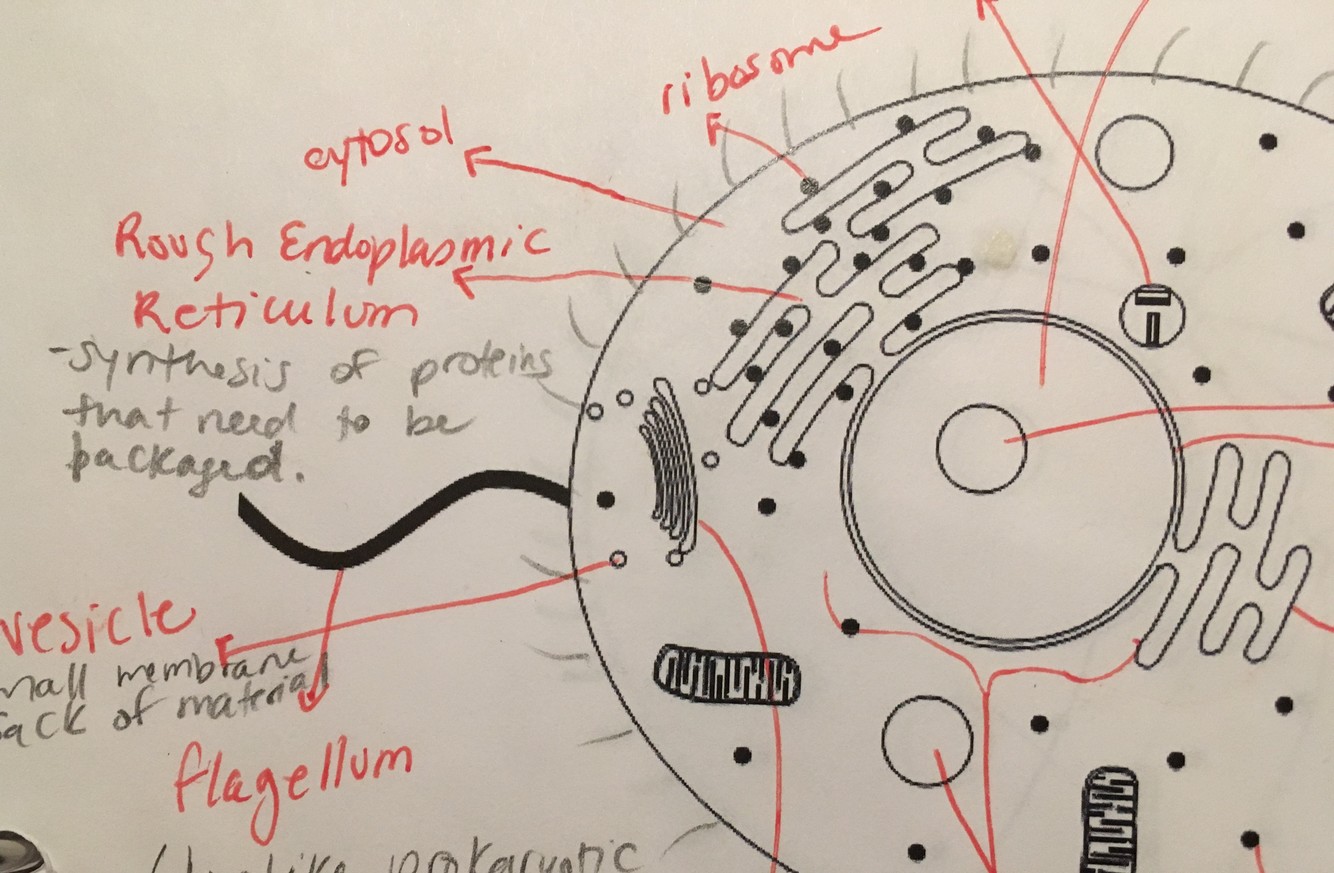 ribosome
cytosol
Rough Endoplasmic
Reticulum
-synthesis of proteins
that need to be
packaged.
vesicle
mall membrane
sack of material
flagellum
like prokaryotic